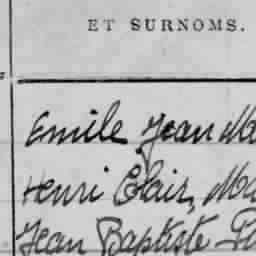 ET SURNOMS.
Emile Jean Ma
Henri Clair, Ma
Jean Baptiste